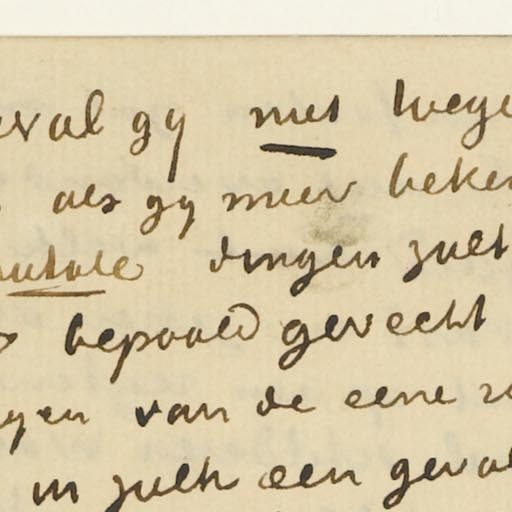 erval gy niet wege
als gy meer beken
autale dingen zult
bepaald gevecht
gen van de eene
in zulk een geval